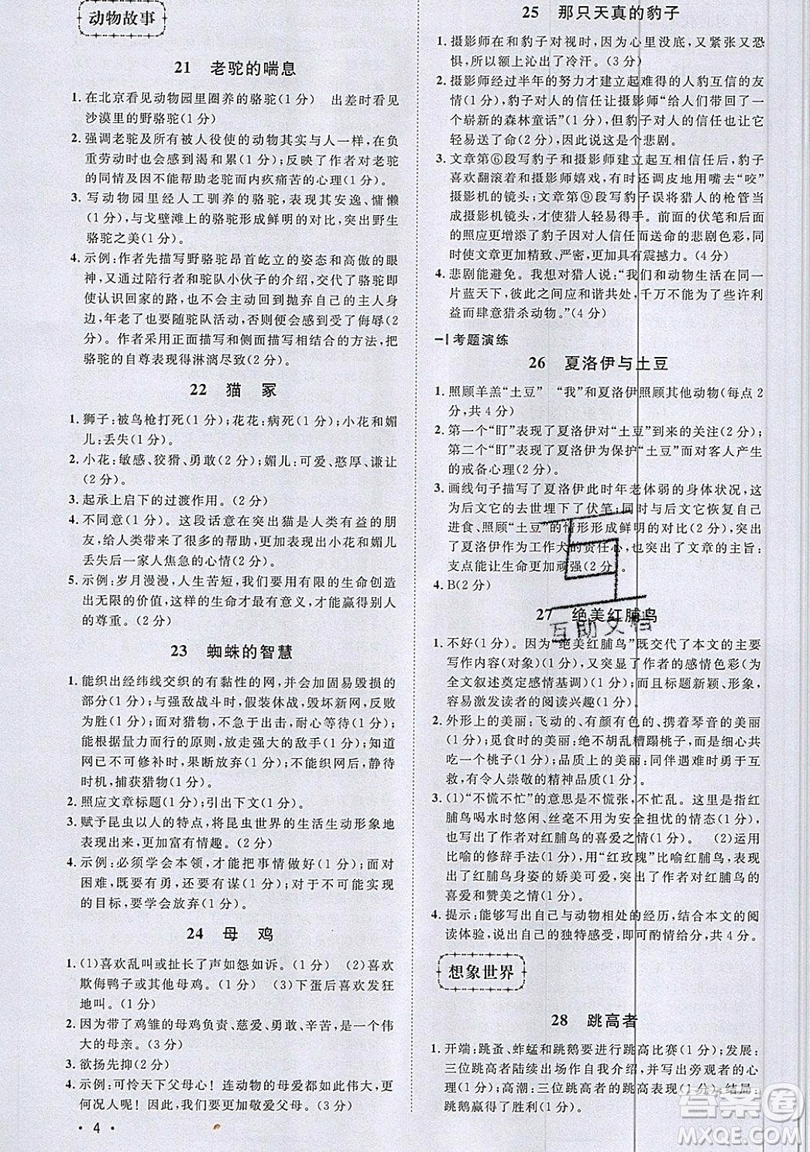 动物故事
21 老驼的喘息
1. 在北京看见动物园里圈养的骆驼(1分) 出差时看见
沙漠里的野骆驼(1分)
2. 强调老驼以及所有被人役使的动物其实与人一样，在负
重劳动时也会感到渴和累(1分)；反映了作者对老驼
的同情及不能帮助老驼而内疚痛苦的心理(1分)
3. 写动物园里经人工驯养的骆驼，表现其安逸、慵懒
(1分)，与戈壁滩上的骆驼形成鲜明的对比，突出野生
骆驼之美(1分)
4. 示例：作者先描写野骆驼昂首屹立的姿态和高傲的眼
神，又通过陪行者和驼队小伙子的介绍，交代了骆驼即
使认识回家的路，也不会主动回到抛弃自己的主人身
边，老了也不能与驼队为伍，否则会受了侮辱(2分)，
作者采用了正面描写和侧面描写相结合的手法，将
骆驼的自尊表现得淋漓尽致(2分)
22 猫 冢
1. 狮子：被鸟枪打死(1分)；花花：病死(1分)；小花和媚
儿：丢失(1分)
2. 小花：敏感、狡猾、勇敢(2分)；媚儿：可爱、憨厚、谦让
(2分)
3. 起承上启下的过渡作用。(2分)
4. 不同意(1分)。这段话意在突出猫是人类有益的朋
友，给人类带来了很多的帮助，更加表现出小花和媚儿
丢失后一家人焦急的心情(2分)
5. 示例：岁月漫漫，人生苦短，我们要用有限的生命创造
出无限的价值，有价值的生命才有意义，才能赢得别人
的尊重。(2分)
23 蜘蛛的智慧
1. 能织出经纬线交织的有黏性的网，并会加固易毁损的
部分(1分)；有强敌战斗时，假装休战，毁坏新网，反败
为胜(1分)；猎物触网，不急于出击，耐心等待(1分)；
能根据量力而行的原则，放走强大的敌手(1分)；知道
网破的时候，果断放弃(1分)；知道在别人的网，静待
时机，捕获猎物(1分)
2. 照应文章标题(1分)；引出下文(1分)
3. 赋予昆虫以人的特点，将昆虫世界的生活生动形象地
表现出来，更加富有情趣。(2分)
4. 示例：必须学会本领，才能把事情做好(1分)；面对
困难，既要有勇，还要有谋(1分)；对于不可能实现
的目标，要学会放弃(1分)
24 母 鸡
1. (1)喜欢乱叫或扯长了声如怨如诉。(1分) (2)喜欢
欺侮鸭子和其他母鸡。(1分) (3)下了蛋后就发狂
地叫。(1分)
2. 因为带了鸡雏的母鸡负责、慈爱、勇敢、辛苦，是一位伟
大的母亲。(3分)
3. 欲扬先抑(2分)
4. 示例：可怜天下父母心！连动物的母爱都如此伟大，更
何况人呢？我们要尊敬、敬爱父母。(3分)
· 4 ·
25 那只天真的豹子
1. 摄影师在和豹子对视时，因为心里没底，又紧张又激
动，所以额上沁出了冷汗。(3分)
2. 摄影师经过半年的努力才建起难得的人豹互信的友
情(1分)，豹子对人的信任让摄影师“给人们带来了一
个崭新的森林童话”(1分)，但豹子对人的信任也害了
自己(1分)，因此说这是个悲剧。(1分)
3. 文章第⑥段写豹子对人和摄影师信任，对着摄影机欢
喜翻滚的情形(1分)，有时还调皮地用嘴去“咬”
摄影机的镜头，文章第⑨段写豹子误猎人的枪管当成
摄影机的镜头，才使得猎人偷猎得手。前面的伏笔和
后面的呼应突出了豹子因对人信任而遭害的悲剧色彩，
同时使文章更加精致、严密，更具有震撼力。(4分)
4. 悲剧能避免。我想对猎人说：“我们和动物生活在同一
片蓝天下，彼此应和谐共处，千万不能为了一些许利
益而肆意猎杀动物。”(4分)
考题演练
26 夏洛伊与土豆
1. 照顾羊羔“土豆” “我”和夏洛伊照顾其他动物(每点2
分，共4分)
2. 第一个“盯”表现了夏洛伊对“土豆”的关注(2分)；
第二个“盯”表现了夏洛伊为保护“土豆”而对客人产生
的戒备心理(2分)；
3. 画线句子描写了夏洛伊此时年老体弱的身体状况，为
后文它的去世埋下了伏笔；同时与后文它恢复自己
进食、照顾“土豆”的情形形成鲜明的对比(2分)，突出
了夏洛伊作为工作犬的责任心，也突出了文章的主旨：
支点能让生命更加顽强(2分)。
4. B(2分)
27 绝美红脯鸟
1. 不好(1分)，因为“绝美红脯鸟”既交代了本文的主要
写作内容(对象)(1分)，又写出了作者的感情色彩(为
全文叙述奠定感情基调)(1分)，而且题目新颖、形象，
容易激发读者的阅读兴趣(1分)
2. 外形上的美丽：飞动的、有颜色的、携着琴音的美丽
(1分)；觅食时的美丽：绝不胡乱糟蹋桃子，而是一起共
吃一个桃子(2分)；品质上的美丽：同伴遇难后的勇敢
行为，有令人崇敬的精神品质(2分)
3. (1)“不慌不忙”的意思是不慌张、不忙乱。写出了红脯
鸟喝水时的悠闲、丝毫不担心安全担忧的情态(1分)，
突出了作者对红脯鸟的喜爱(1分) (2)运用
比喻的修辞手法(1分)，用“红玫瑰”比喻红脯鸟，
表现出红脯鸟身姿的美丽动人(1分)，表达了作者的
喜爱和赞美之情(1分)
4. 提示：能够写出自己与动物相处的经历，结合本文的阅
读体验，写出自己的独特感受即可。(5分)
想象世界
28 跳高者
1. 开端：跳蚤、蚱蜢和跳鹅要进行跳高比赛(1分)；发展：
三位跳高者陆续出场作自我表现，并写出旁观者的心
理(1分)；高潮：三位跳高者跳高(1分)；结局：
跳鹅获得了胜利(1分)
互助文档
答案圈
MXQE.COM